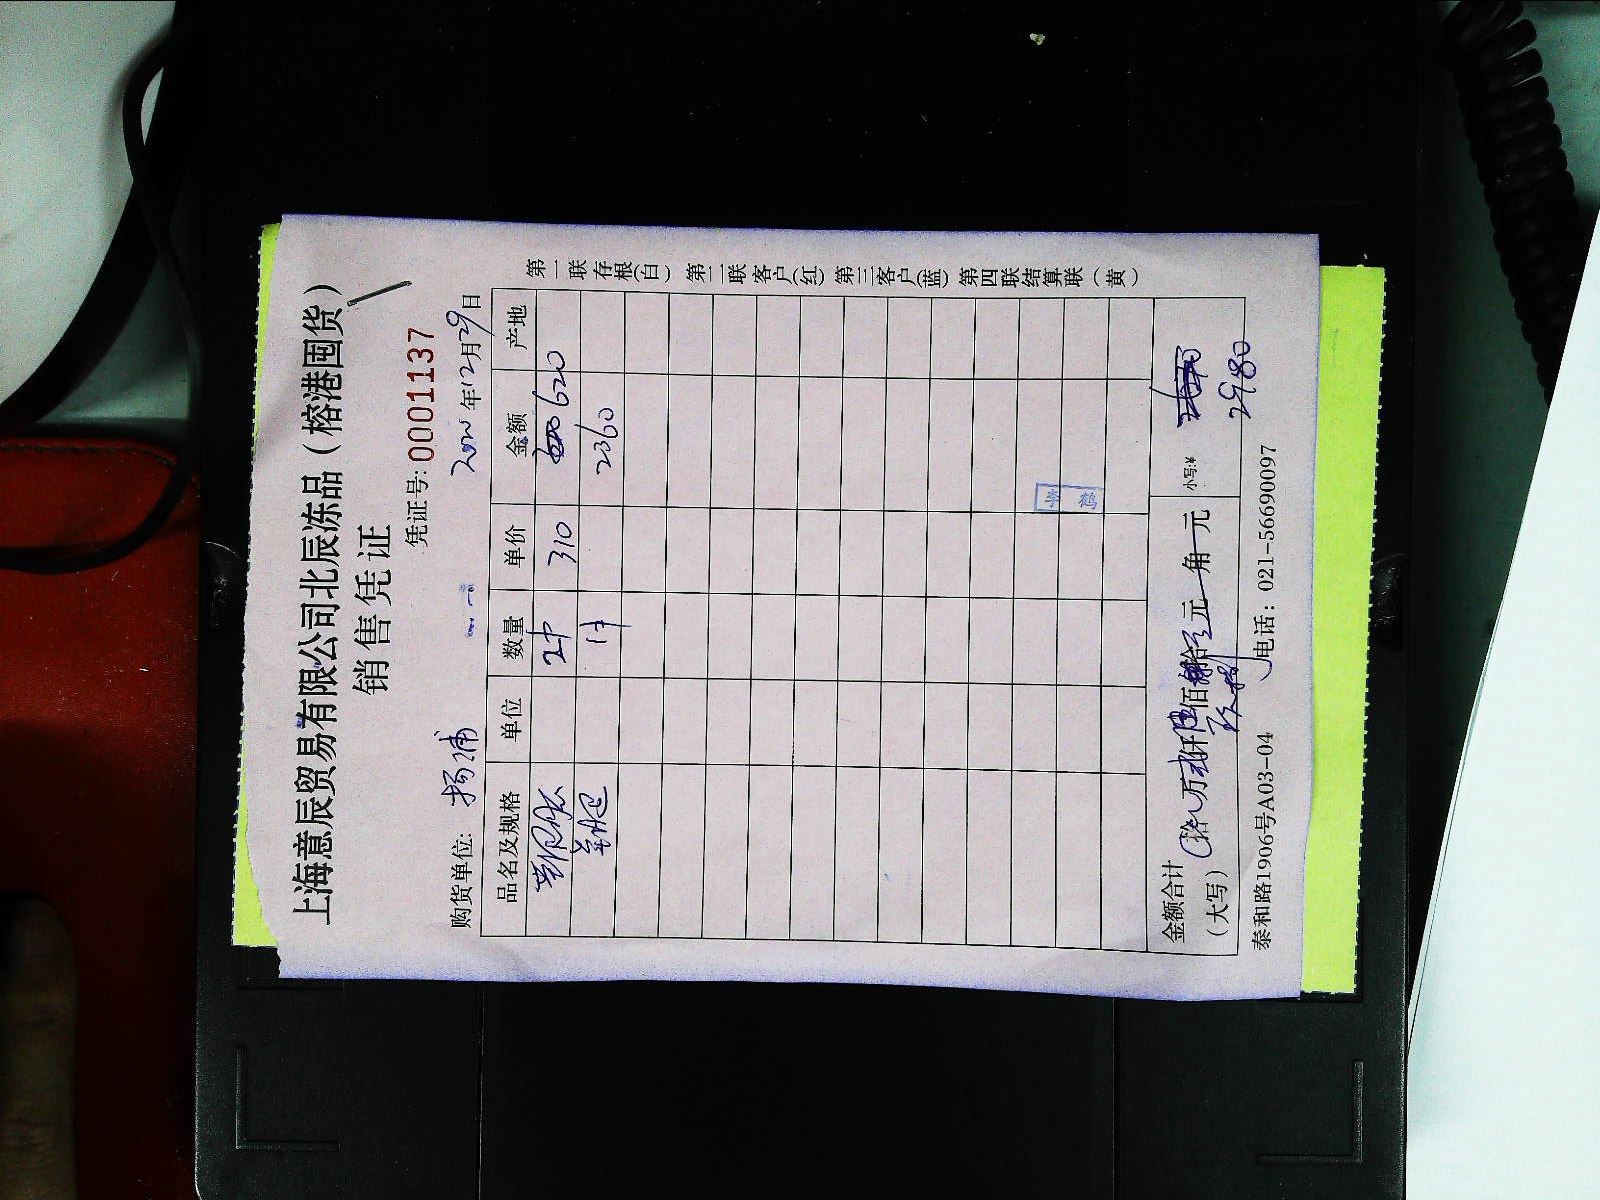 上海意辰贸易有限公司北辰冻品（榕港囤货）
销售凭证
凭证号:0001137
购货单位: 杨浦 年12月29日
品名及规格 单位 数量 单价 金额 产地
2件 310 620
1件 2360
金额合计
（大写） 拾 万 仟 佰 拾 元 角 元 小写:¥ 2980
泰和路1906号A03-04 电话：021-56690097
第一联存根(白) 第二联客户(红) 第三客户(蓝) 第四联结算联（黄）